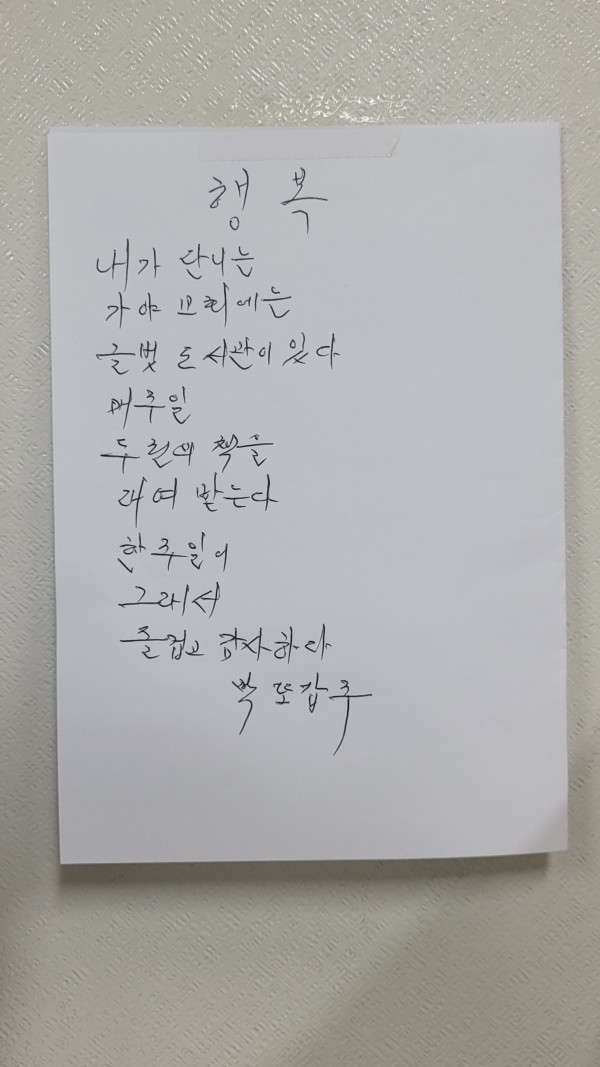 행 복
내가 단니는
가야 교회에는
글벗 도서관이 있다
매주일
두 권에 책을
대여 받는다
한주일이
그래서
즐겁고 감사하다
박 또갑주